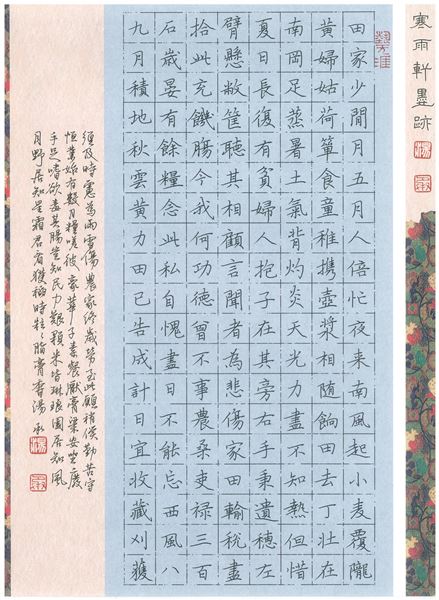 寒雨軒墨跡
田家少閒月五月人倍忙夜來南風起小麥覆隴
黃婦姑荷簞食童稚攜壺漿相隨餉田去丁壯在
南岡足蒸暑土氣背灼炎天光力盡不知熱但惜
夏日長復有貧婦人抱子在其旁右手秉遺穗左
臂懸敝筐聽其相顧言聞者為悲傷家田輸稅盡
拾此充饑腸今我何功德曾不事農桑吏祿三百
石歲晏有餘糧念此私自愧盡日不能忘西風八
九月積地秋雲黃力田已告成計日宜收藏刈穫
須及時慮為雨雪傷農家終歲勞至此願稍償勤苦守
恆業始有數月糧嘆彼豪華子素餐厭膏粱安坐廢
手足嗜欲毒其腸豈知民力艱顆米皆琳琅園居知風
月野居知星霜君看獲稻時粒々脂膏香